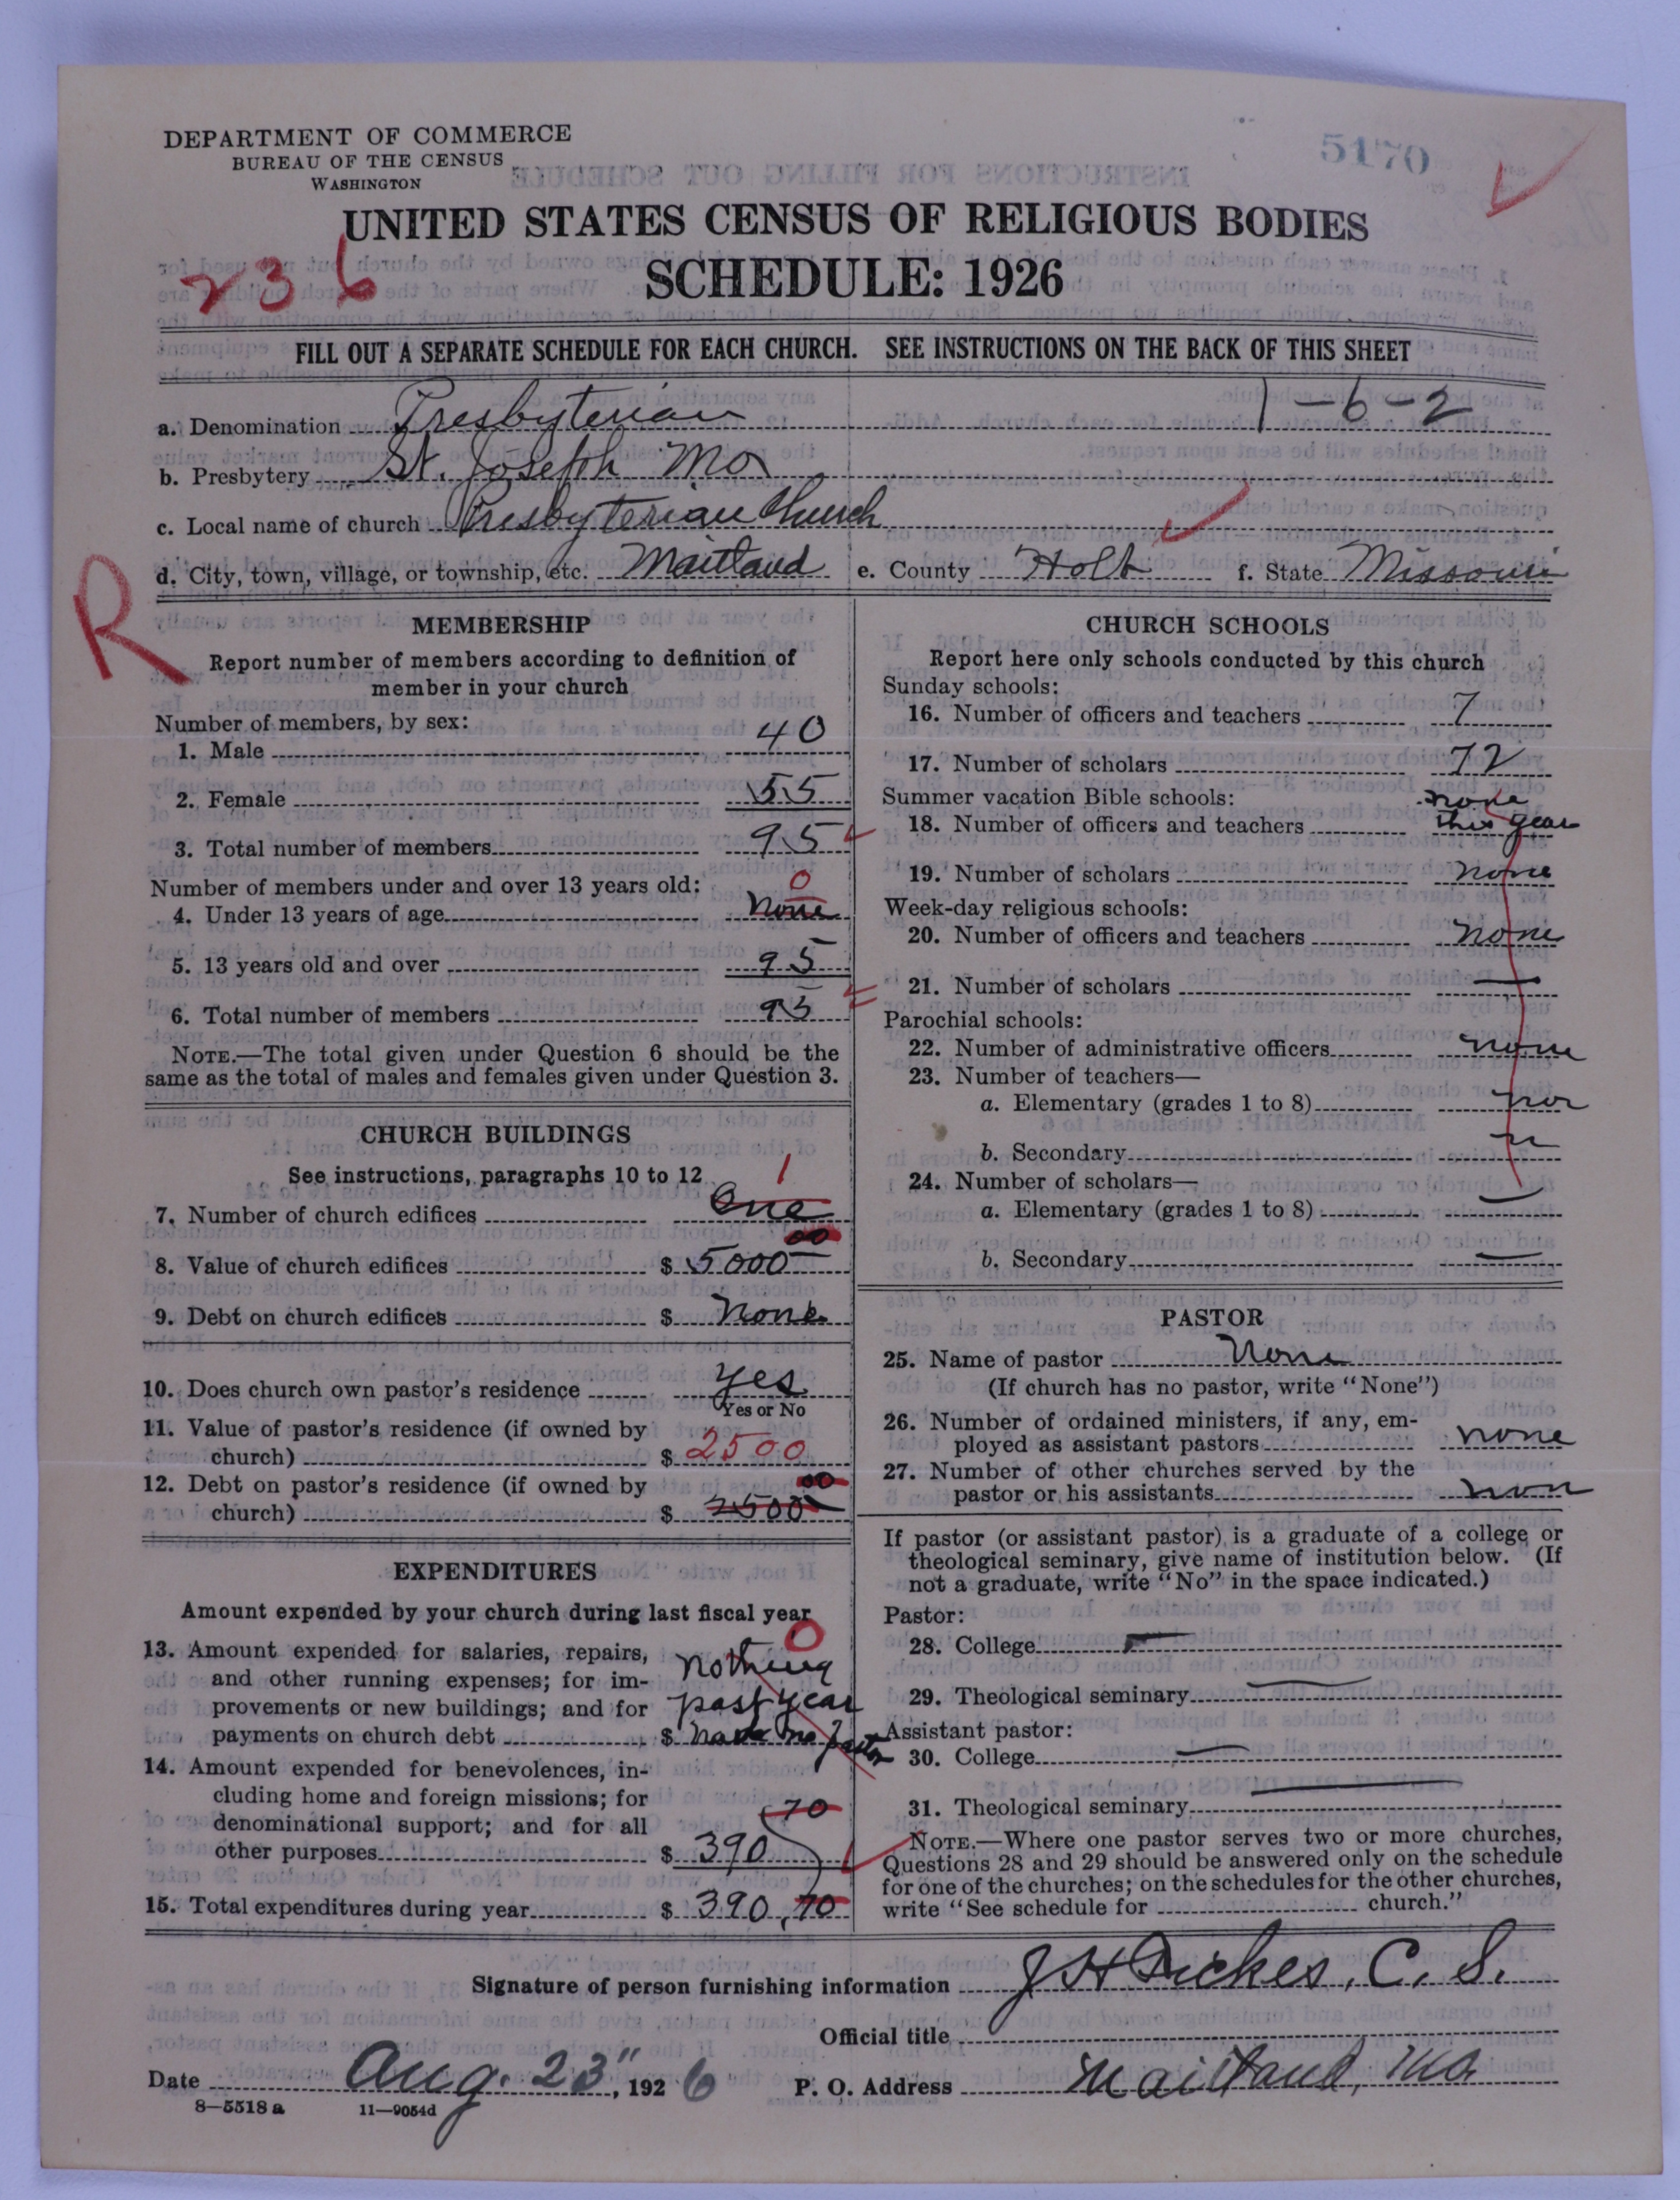 DEPARTMENT OF COMMERCE
BUREAU OF THE CENSUS
WASHINGTON
5170
UNITED STATES CENSUS OF RELIGIOUS BODIES
SCHEDULE: 1926
236
FILL OUT A SEPARATE SCHEDULE FOR EACH CHURCH. SEE INSTRUCTIONS ON THE BACK OF THIS SHEET
1-6-2
a. Denomination Presbyterian
b. Presbytery St. Joseph Mo
c. Local name of church Presbyterian Church
d. City, town, village, or township, etc. Maitland e. County Holt f. State Missouri
R
MEMBERSHIP
Report number of members according to definition of
member in your church
Number of members, by sex:
1. Male 40
2. Female 55
3. Total number of members 95
Number of members under and over 13 years old:
0
4. Under 13 years of age none
5. 13 years old and over 95
6. Total number of members 95
NOTE.—The total given under Question 6 should be the
same as the total of males and females given under Question 3.
CHURCH BUILDINGS
See instructions, paragraphs 10 to 12
1
7. Number of church edifices One
8. Value of church edifices $ 5000 00
9. Debt on church edifices $ none
10. Does church own pastor's residence yes
Yes or No
11. Value of pastor's residence (if owned by
church) $ 2500
12. Debt on pastor's residence (if owned by
church) $ 2500 00
EXPENDITURES
Amount expended by your church during last fiscal year
0
13. Amount expended for salaries, repairs, nothing
and other running expenses; for im-
provements or new buildings; and for past year
payments on church debt $ have no pastor
14. Amount expended for benevolences, in-
cluding home and foreign missions; for
denominational support; and for all 70
other purposes $ 390
15. Total expenditures during year $ 390,70
CHURCH SCHOOLS
Report here only schools conducted by this church
Sunday schools:
16. Number of officers and teachers 7
17. Number of scholars 72
Summer vacation Bible schools: none
18. Number of officers and teachers this year
19. Number of scholars none
Week-day religious schools:
20. Number of officers and teachers none
21. Number of scholars —
Parochial schools:
22. Number of administrative officers none
23. Number of teachers—
a. Elementary (grades 1 to 8)
b. Secondary
24. Number of scholars—
a. Elementary (grades 1 to 8) —
b. Secondary —
PASTOR
25. Name of pastor None
(If church has no pastor, write "None")
26. Number of ordained ministers, if any, em-
ployed as assistant pastors none
27. Number of other churches served by the
pastor or his assistants non
If pastor (or assistant pastor) is a graduate of a college or
theological seminary, give name of institution below. (If
not a graduate, write "No" in the space indicated.)
Pastor:
28. College —
29. Theological seminary —
Assistant pastor:
30. College —
31. Theological seminary —
NOTE.—Where one pastor serves two or more churches,
Questions 28 and 29 should be answered only on the schedule
for one of the churches; on the schedules for the other churches,
write "See schedule for church."
Signature of person furnishing information J H Dickes, C. S.
Official title
Date Aug. 23", 1926 P. O. Address Maitland, Mo
8—5518 a 11—9054d